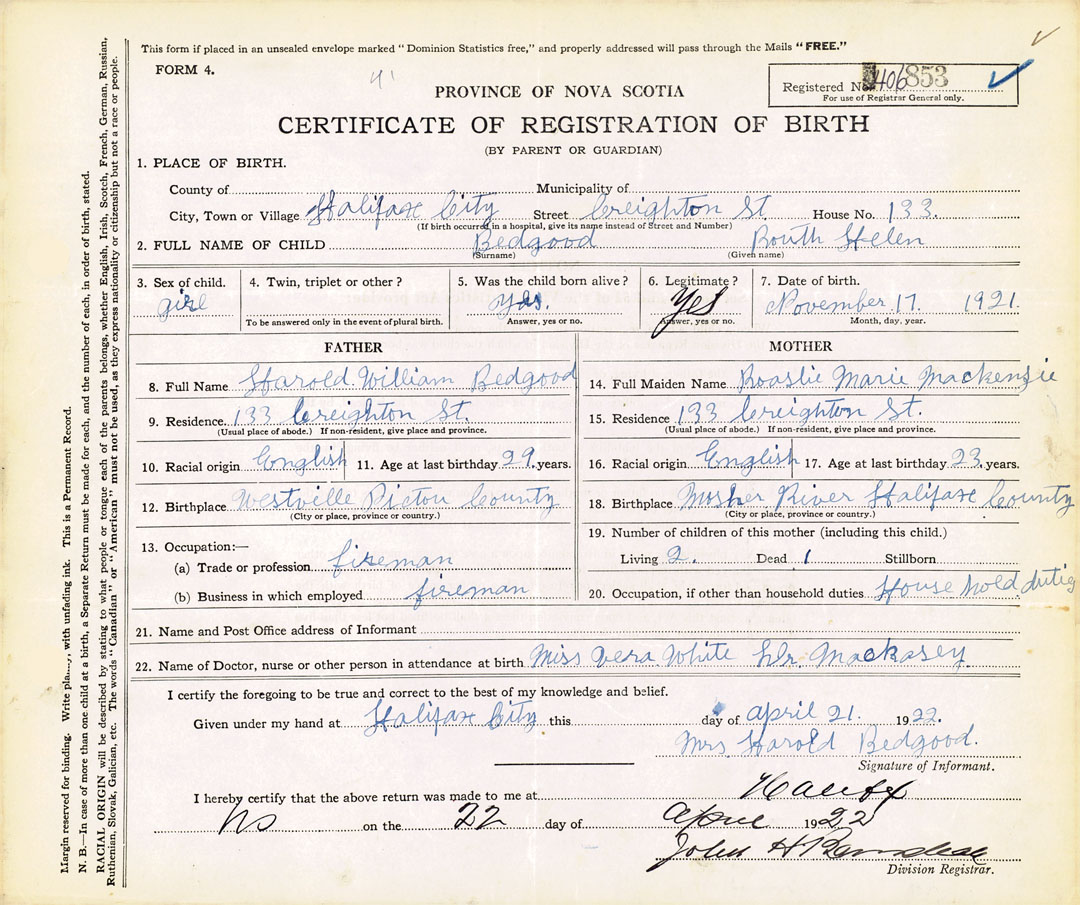 This form if placed in an unsealed envelope marked "Dominion Statistics free," and properly addressed will pass through the Mails "FREE."
FORM 4.
41
Registered No. 406853
For use of Registrar General only.
PROVINCE OF NOVA SCOTIA
CERTIFICATE OF REGISTRATION OF BIRTH
(BY PARENT OR GUARDIAN)
1. PLACE OF BIRTH.
County of Municipality of
City, Town or Village Halifax City Street Creighton St House No. 133.
(If birth occurred in a hospital, give its name instead of Street and Number)
2. FULL NAME OF CHILD Bedgood Routh Helen
(Surname) (Given name)
3. Sex of child. 4. Twin, triplet or other? 5. Was the child born alive? 6. Legitimate? 7. Date of birth.
girl Yes. Yes November 17 1921.
To be answered only in the event of plural birth. Answer, yes or no. Answer, yes or no. Month, day, year.
FATHER
8. Full Name Harold William Bedgood
9. Residence 133 Creighton St.
(Usual place of abode.) If non-resident, give place and province.
10. Racial origin English 11. Age at last birthday 29 years.
12. Birthplace Westville Pictou County
(City or place, province or country.)
13. Occupation:—
(a) Trade or profession fireman
(b) Business in which employed fireman
MOTHER
14. Full Maiden Name Roaslie Marie Mackenzie
15. Residence 133 Creighton St.
(Usual place of abode.) If non-resident, give place and province.
16. Racial origin English 17. Age at last birthday 23 years.
18. Birthplace Mosher River Halifax County
(City or place, province or country.)
19. Number of children of this mother (including this child.)
Living 2. Dead 1 Stillborn
20. Occupation, if other than household duties House hold duties
21. Name and Post Office address of Informant
22. Name of Doctor, nurse or other person in attendance at birth Miss Vera White Dr. Mackasey
I certify the foregoing to be true and correct to the best of my knowledge and belief.
Given under my hand at Halifax City this day of April 21. 1922.
Mrs. Harold Bedgood.
Signature of Informant.
I hereby certify that the above return was made to me at Halifax
NS on the 22 day of April 1922
John H
Division Registrar.
Margin reserved for binding. Write with unfading ink. This is a Permanent Record.
N. B.—In case of more than one child at a birth, a Separate Return must be made for each, and the number of each, in order of birth, stated.
RACIAL ORIGIN will be described by stating to what people or tongue each of the parents belongs, whether English, Irish, Scotch, French, German, Russian,
Ruthenian, Slovak, Galician, etc. The words "Canadian" or "American" must not be used, as they express nationality or citizenship but not a race or people.